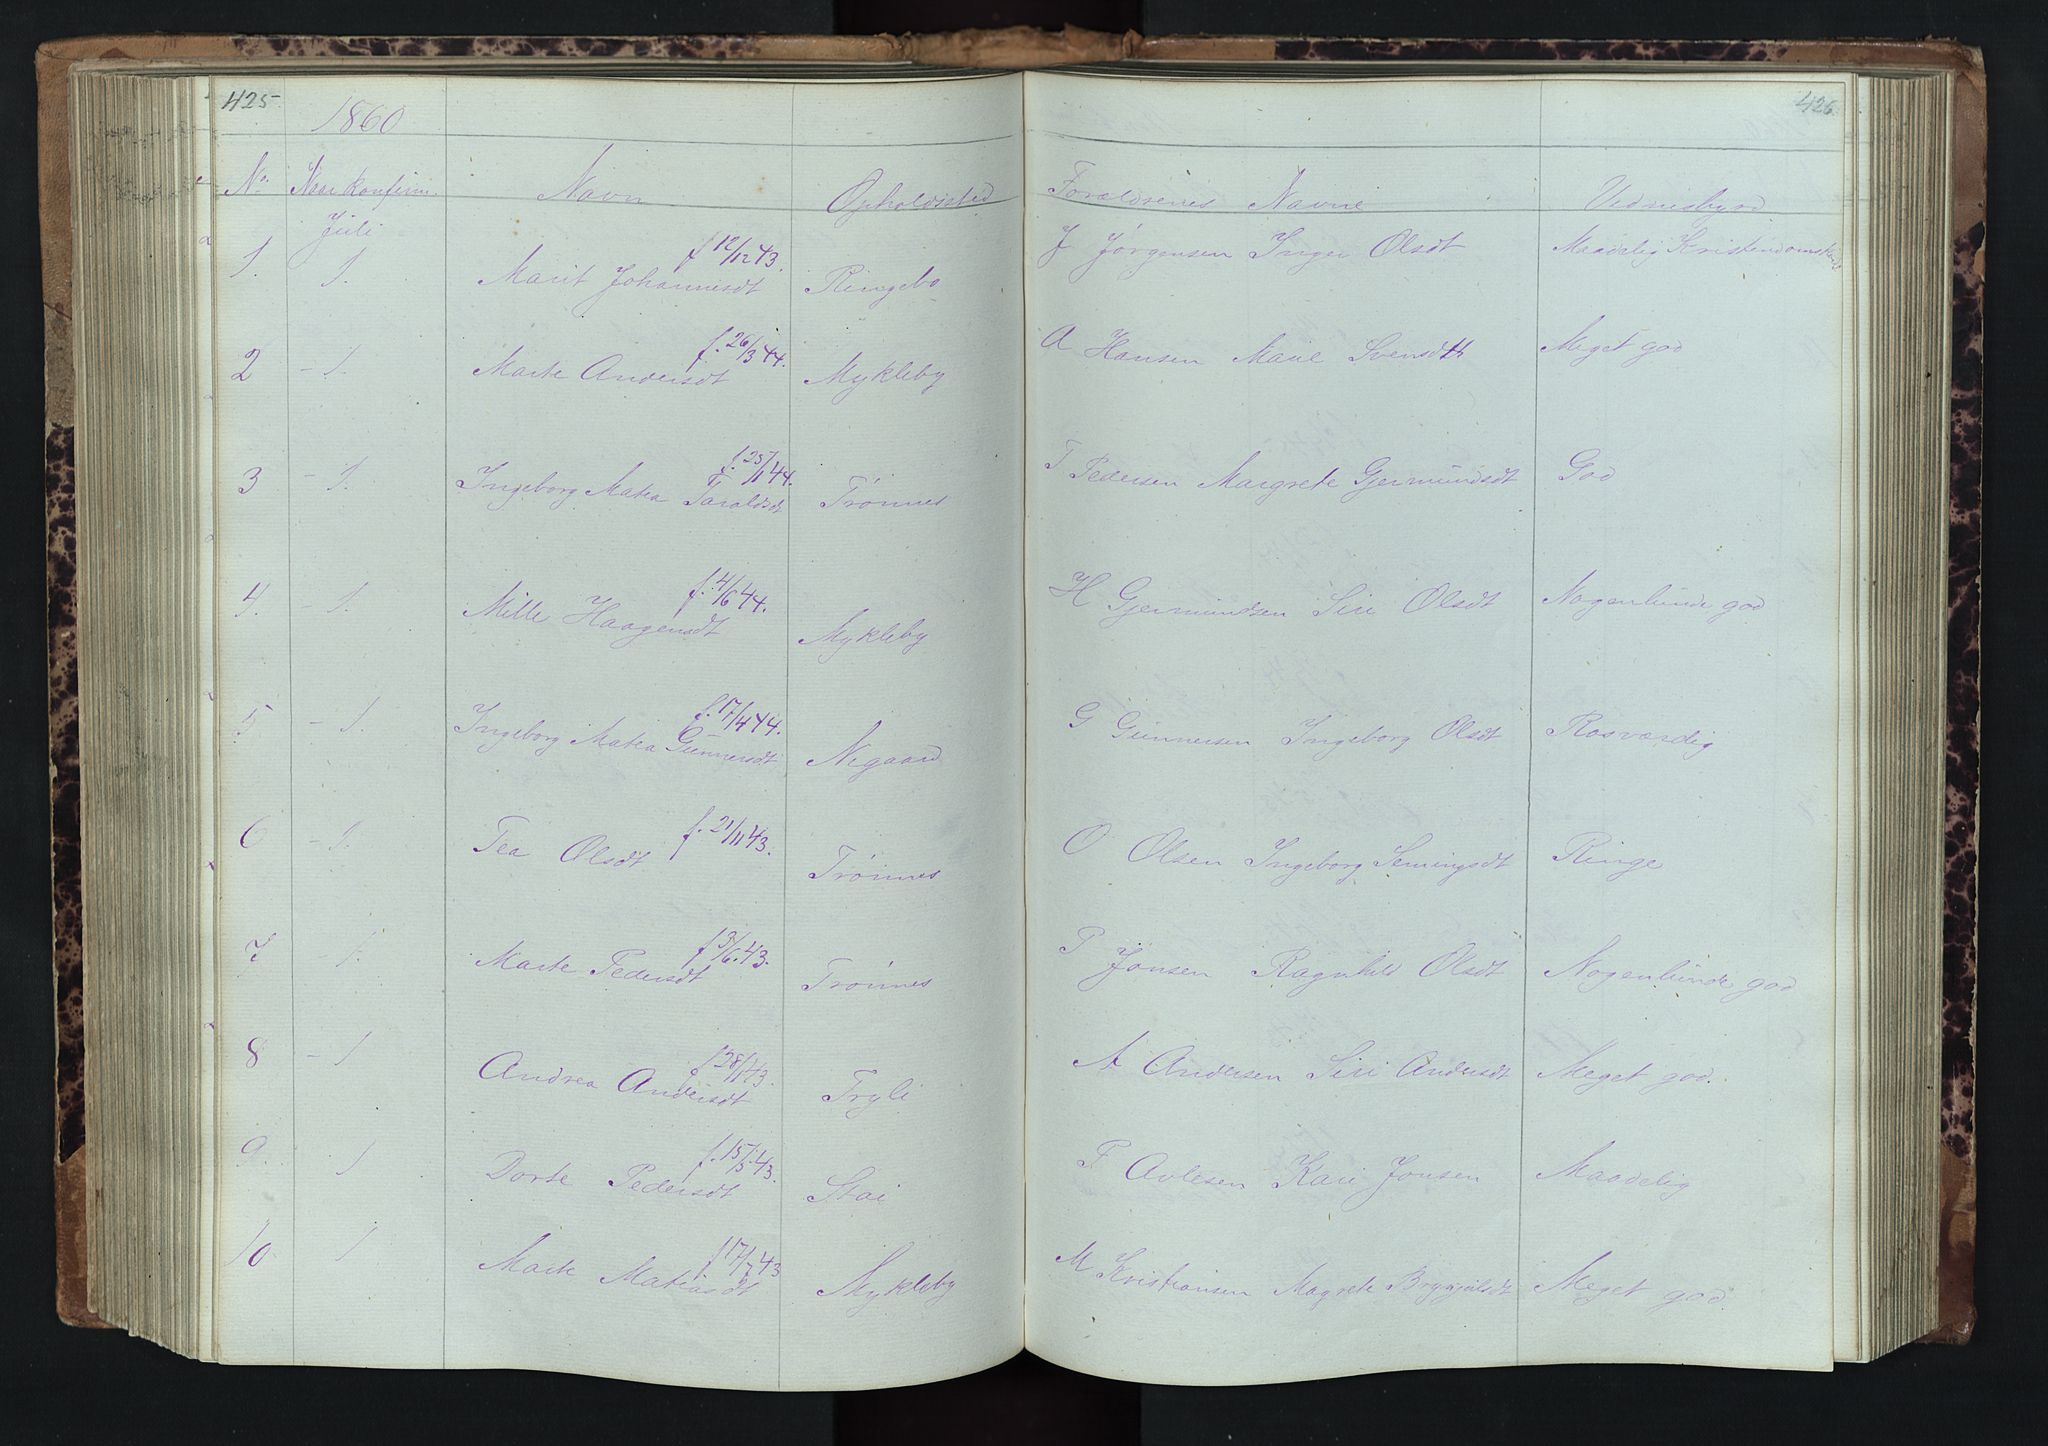 425
426
1860
No. Naar konfirm. Navn Opholdssted Forældrenes Navne Vidnesbyrd
Juli
1. 1. Marit Johannesdt f 12/12 43. Ringebo J Jørgensen Inger Olsdt Maadelig Kristendomskund
2 - 1. Marte Andersdt f. 26/3 44. Mykleby A Hansen Marie Svensdtt Meget god
3 - 1. Ingeborg Matea Taraldsdt f. 25/1 44. Trønnes T Pedersen Margrete Gjermundsdt God
4. - 1. Mille Haagensdt f. 4/6 44. Mykleby H Gjermundsen Siri Olsdt Nogenlunde god
5 - 1. Ingeborg Matea Gunnersdt f. 17/4 44. Negaard G Gunnersen Ingeborg Olsdt Rosværdig
6 - 1. Tea Olsdt f. 21/11 43. Trønnes O Olsen Ingeborg Semingsdt Ringe
7 - 1. Marte Pedersdt f 3/6. 43. Trønnes P Jonsen Ragnhild Olsdt Nogenlunde god
8 - 1 Andrea Andersdt f 28/1 43. Tryli A Andersen Siri Andersdt Meget god.
9. 1 Dorte Pedersdt f. 15/3. 43. Stai P Avlesen Kari Jonsen Maadelig
10 1 Marte Matiasdt f 17/7 43 Mykleby M Kristiansen Magrete Bryngjulsdt Meget god.